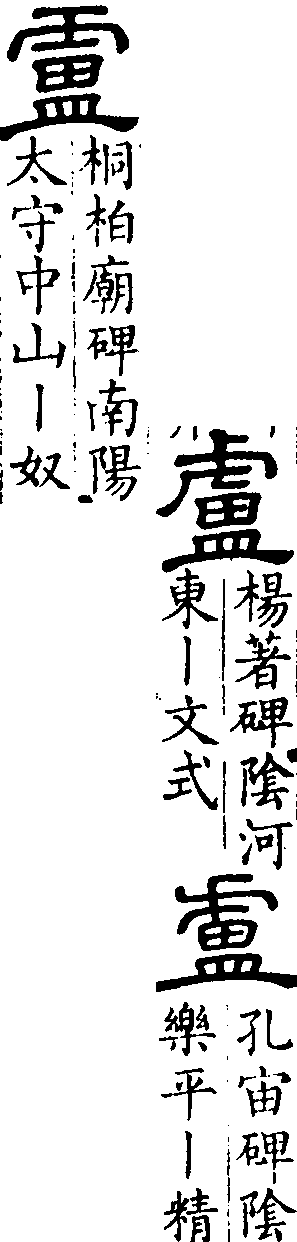 盧
楊著碑陰河
東丨文式
盧
孔宙碑陰
樂平丨精
盧
桐柏廟碑南陽
太守中山丨奴